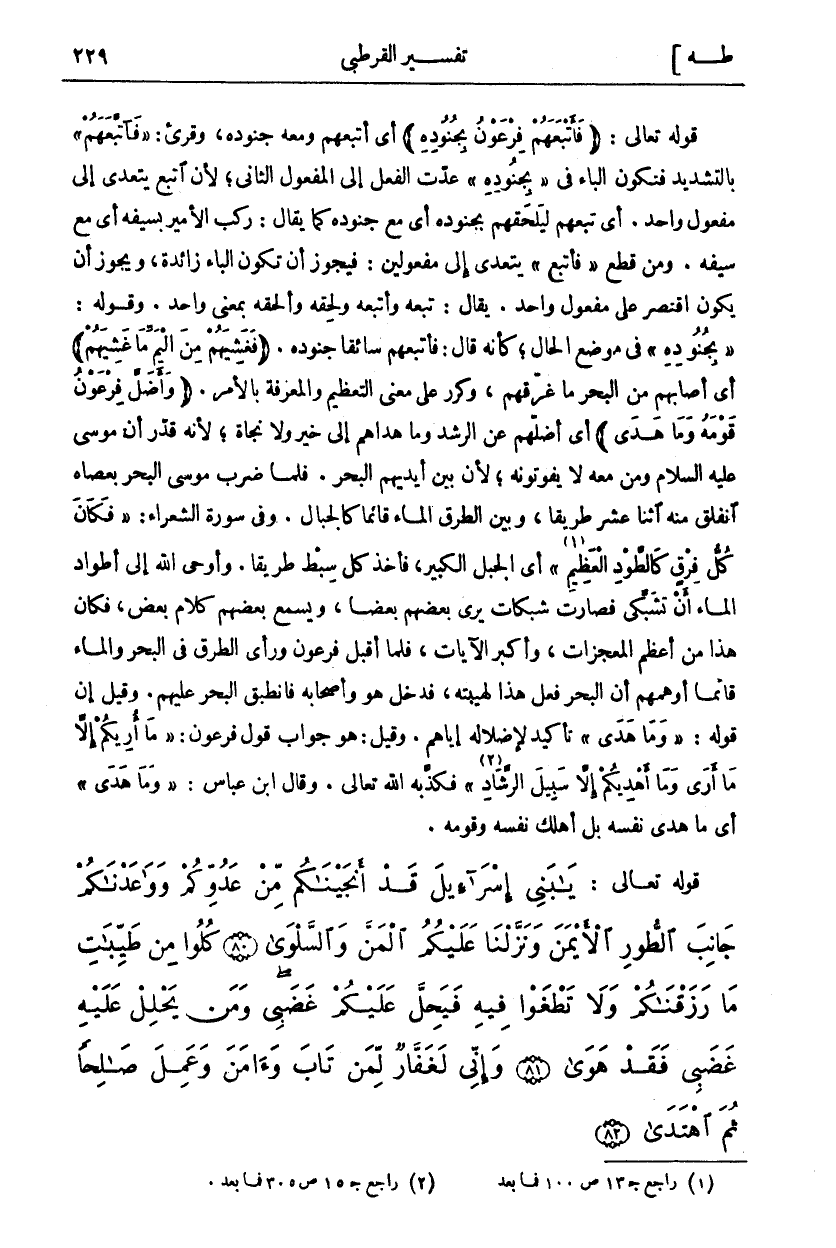 طـــه ] تفســـير القرطبى ٢٢٩
قوله تعالى : ﴿ فَأَتْبَعَهُمْ فِرْعَوْنُ بِجُنُودِهِ ﴾ أى أتبعهم ومعه جنوده، وقرئ: « فَاتَّبَعَهُمْ »
بالتشديد فتكون الباء فى « بِجُنُودِهِ » عدّت الفعل إلى المفعول الثانى؛ لأن اتبع يتعدى إلى
مفعول واحد . أى تبعهم ليَلحَقهم بجنوده أى مع جنوده كما يقال : ركب الأمير بسيفه أى مع
سيفه . ومن قطع « فأتبع » يتعدى إلى مفعولين : فيجوز أن تكون الباء زائدة، ويجوز أن
يكون اقتصر على مفعول واحد . يقال : تبعه وأتبعه ولحقه وألحقه بمعنى واحد . وقـوله :
« بِجُنُودِهِ » فى موضع الحال؛ كأنه قال: فأتبعهم سائقا جنوده . ﴿ فَغَشِيَهُمْ مِنَ الْيَمِّ مَا غَشِيَهُمْ ﴾
أى أصابهم من البحر ما غرّقهم ، وكرر على معنى التعظيم والمعرفة بالأمر . ﴿ وَأَضَلَّ فِرْعَوْنُ
قَوْمَهُ وَمَا هَـدَى ﴾ أى أضلّهم عن الرشد وما هداهم إلى خير ولا نجاة ؛ لأنه قدّر أن موسى
عليه السلام ومن معه لا يفوتونه ؛ لأن بين أيديهم البحر . فلمـا ضرب موسى البحر بعصاه
انفلق منه اثنا عشر طريقا ، وبين الطرق المـاء قائما كالجبال . وفى سورة الشعراء: « فَكَانَ
كُلُّ فِرْقٍ كَالطَّوْدِ الْعَظِيمِ (١) » أى الجبل الكبير، فأخذ كل سِبْط طريقا . وأوحى الله إلى أطواد
المـاء أَنْ تشَبَّكى فصارت شبكات يرى بعضهم بعضـا ، ويسمع بعضهم كلام بعض، فكان
هذا من أعظم المعجزات ، وأكبر الآيات ، فلما أقبل فرعون ورأى الطرق فى البحر والمـاء
قائمـا أوهمهم أن البحر فعل هذا لهيبته، فدخل هو وأصحابه فانطبق البحر عليهم. وقيل إن
قوله : « وَمَا هَدَى » تأكيد لإضلاله إياهم . وقيل: هو جواب قول فرعون: « مَا أُرِيكُمْ إِلَّا
مَا أَرَى وَمَا أَهْدِيكُمْ إِلَّا سَبِيلَ الرَّشَادِ (٢) » فكذّبه الله تعالى . وقال ابن عباس : « وَمَا هَدَى »
أى ما هدى نفسه بل أهلك نفسه وقومه .
قوله تعـالى : يَـٰبَنِى إِسْرَٰٓءِيلَ قَـدْ أَنجَيْنَـٰكُم مِّنْ عَدُوِّكُمْ وَوَٰعَدْنَـٰكُمْ
جَانِبَ ٱلطُّورِ ٱلْأَيْمَنَ وَنَزَّلْنَا عَلَيْكُمُ ٱلْمَنَّ وَٱلسَّلْوَىٰ ﴿٨٠﴾ كُلُوا مِن طَيِّبَـٰتِ
مَا رَزَقْنَـٰكُمْ وَلَا تَطْغَوْا فِيهِ فَيَحِلَّ عَلَيْكُمْ غَضَبِى وَمَن يَحْلِلْ عَلَيْهِ
غَضَبِى فَقَـدْ هَوَىٰ ﴿٨١﴾ وَإِنِّى لَغَفَّارٌ لِّمَن تَابَ وَءَامَنَ وَعَمِـلَ صَـٰلِحًا
ثُمَّ ٱهْتَدَىٰ ﴿٨٢﴾
(١) راجع جـ ١٣ ص ١٠٠ فما بعد (٢) راجع جـ ١٥ ص ٣٠٥ فما بعد .